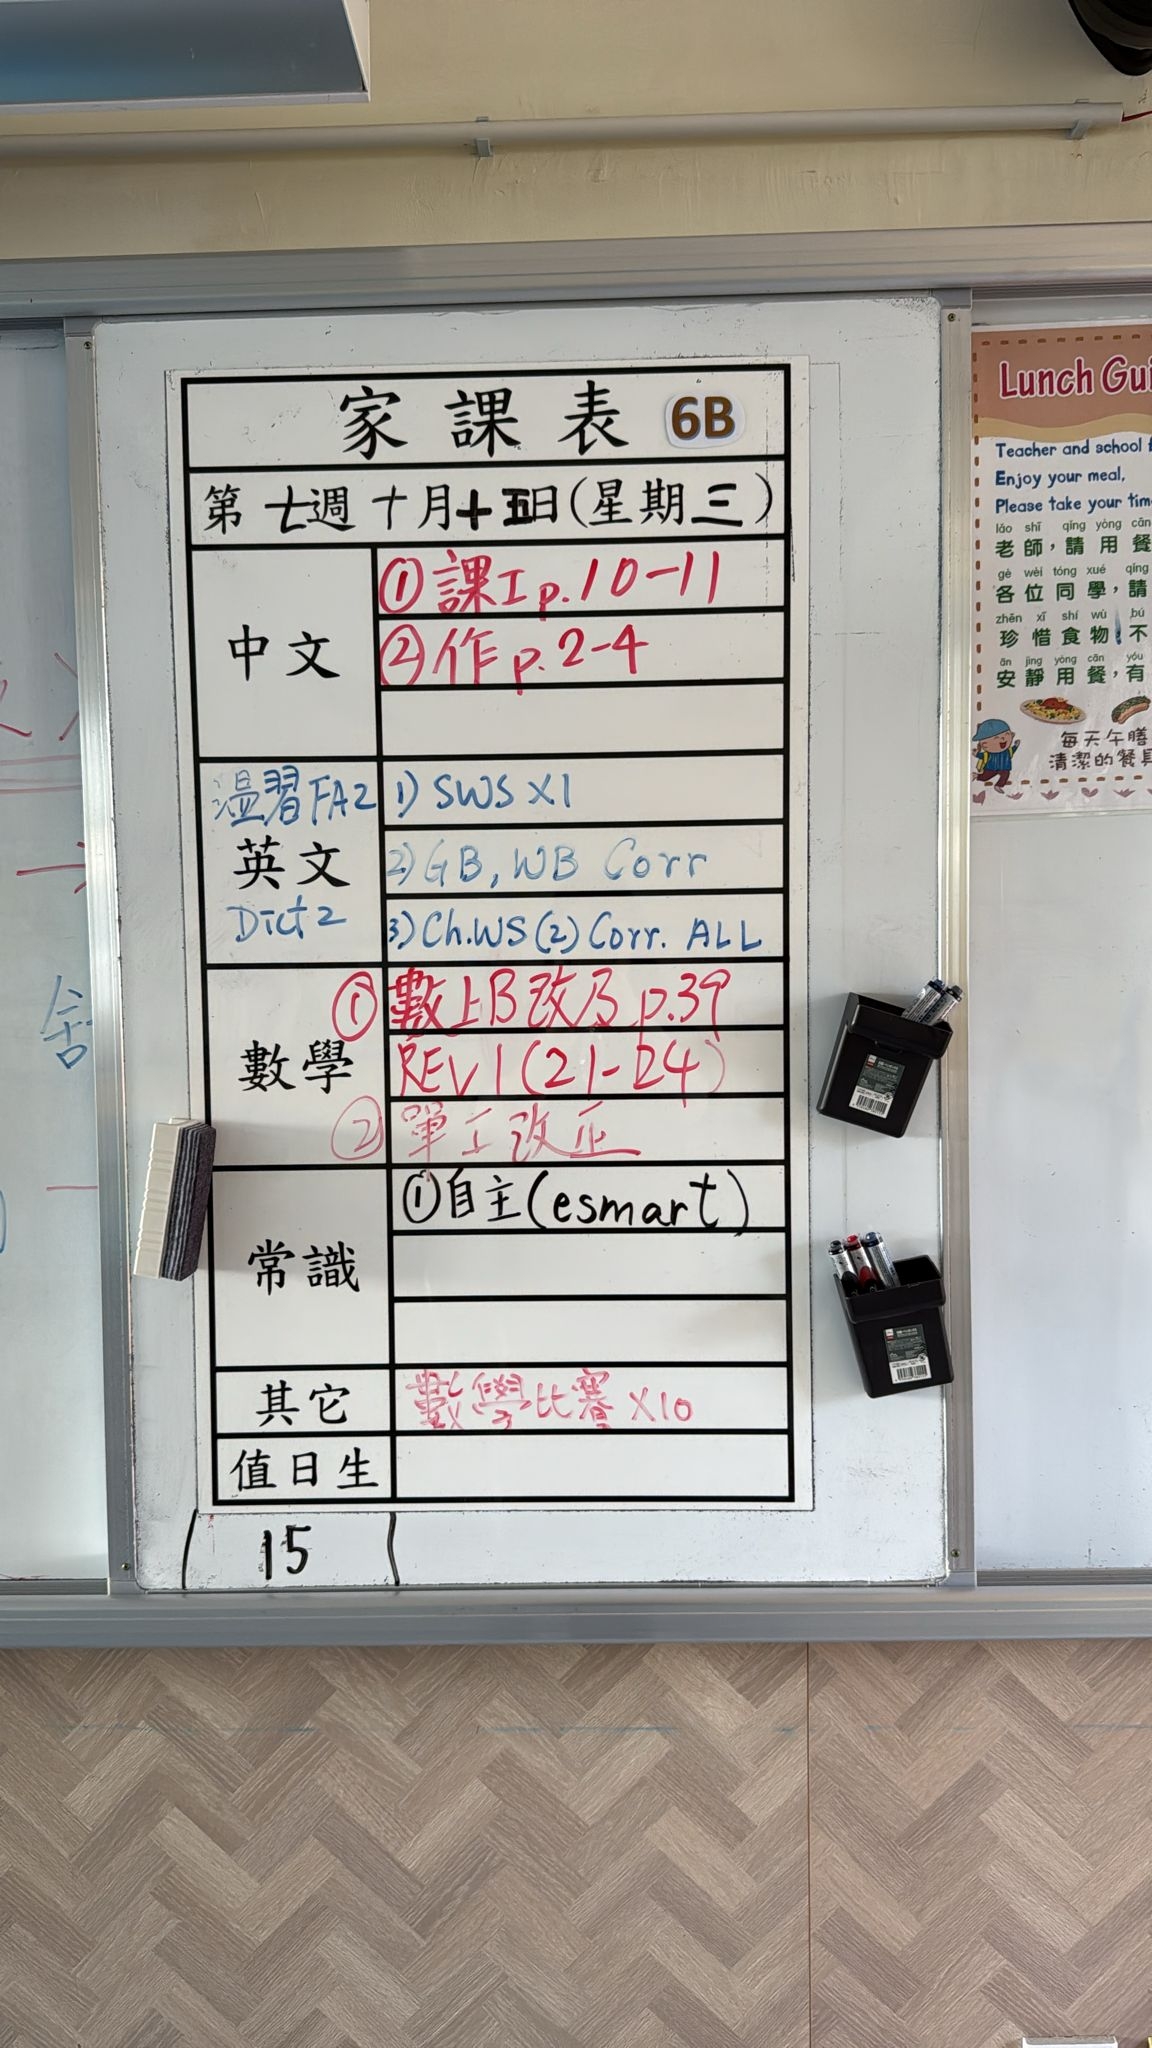 家課表 6B
第七週十月十五日(星期三)
中文
①課工p.10-11
②作p.2-4
溫習FA2
英文
Dict2
1) SWS X1
2) GB, WB Corr
3) Ch.WS(2) Corr. ALL
數學
① 數上B改及p.39
REV1(21-24)
② 單工改正
常識
①自主(esmart)
其它
數學比賽X10
值日生
15
Lunch Gui
Teacher and school
Enjoy your meal,
Please take your tim
lǎo shī qǐng yòng cān
老師,請用餐
gè wèi tóng xué qǐng
各位同學,請
zhēn xī shí wù bú
珍惜食物,不
ān jìng yòng cān yǒu
安靜用餐,有
每天午膳
清潔的餐具